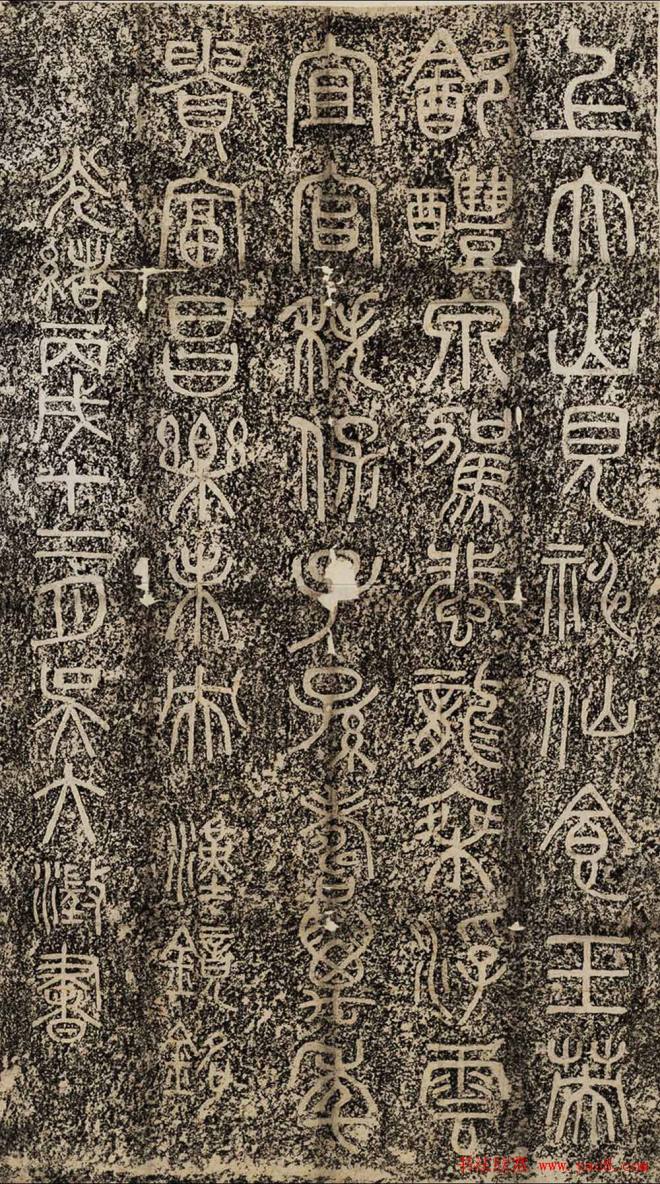 上大山見神仙食玉英
飲醴泉駕蜚龍乘浮雲
宜官秩保子孫壽萬年
貴富昌樂未央 漢鏡銘
光緒丙戌十二月吳大澂書
书法欣赏 www.yac8.com